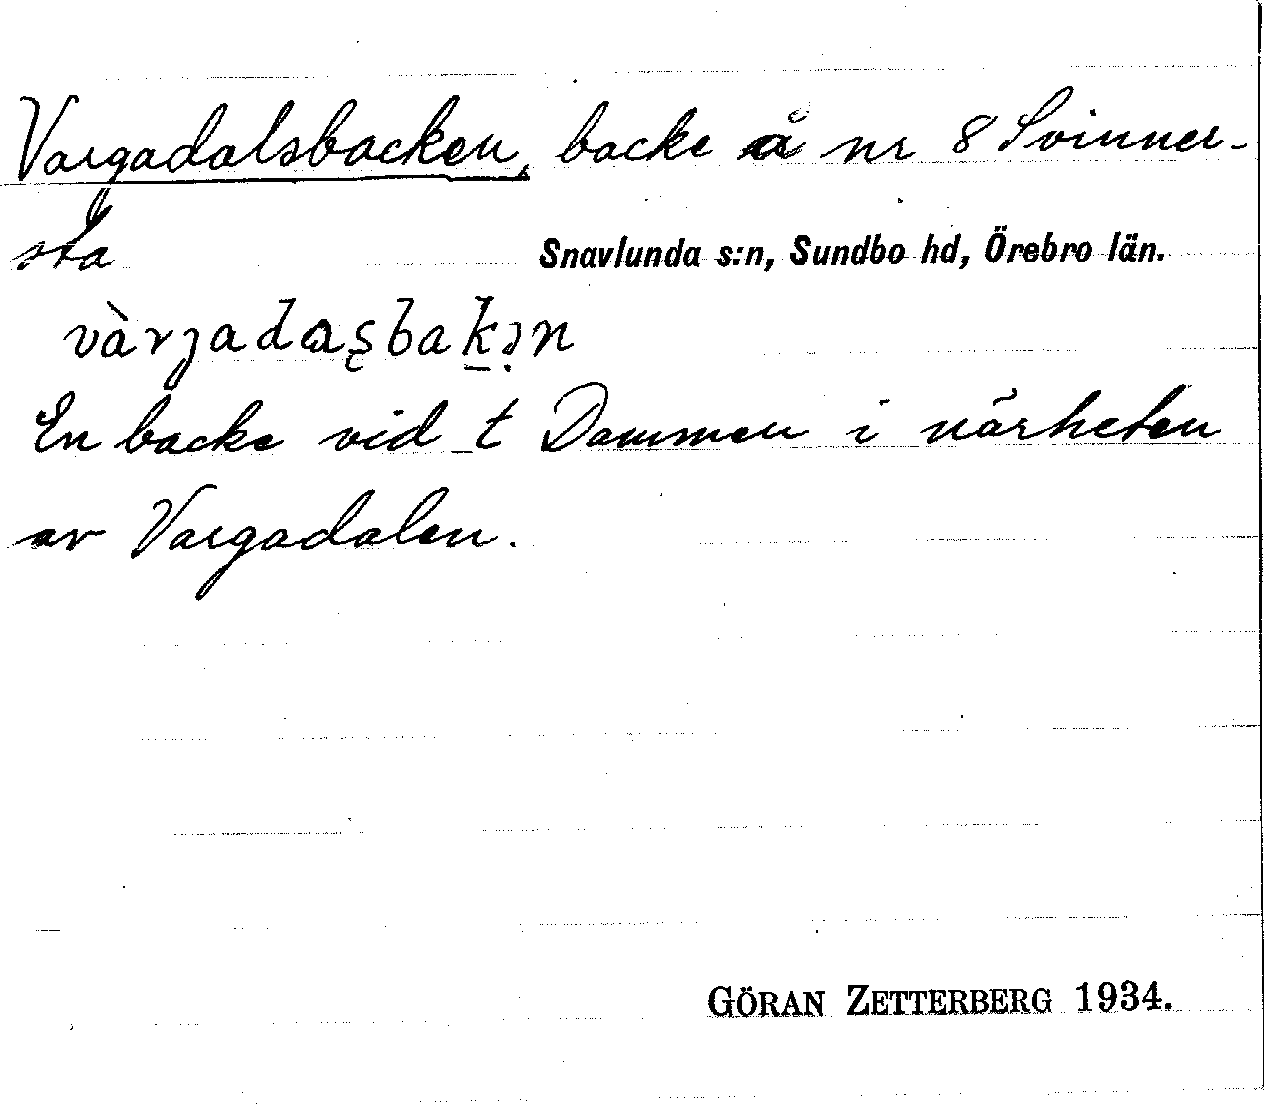 Vargadalsbacken, backe å nr 8 Svinner-
sta
Snavlunda s:n, Sundbo hd, Örebro län.
vàrʒadaʂbak̲ə̣n
En backe vid t Dammen i närheten
av Vargadalen.
GÖRAN ZETTERBERG 1934.